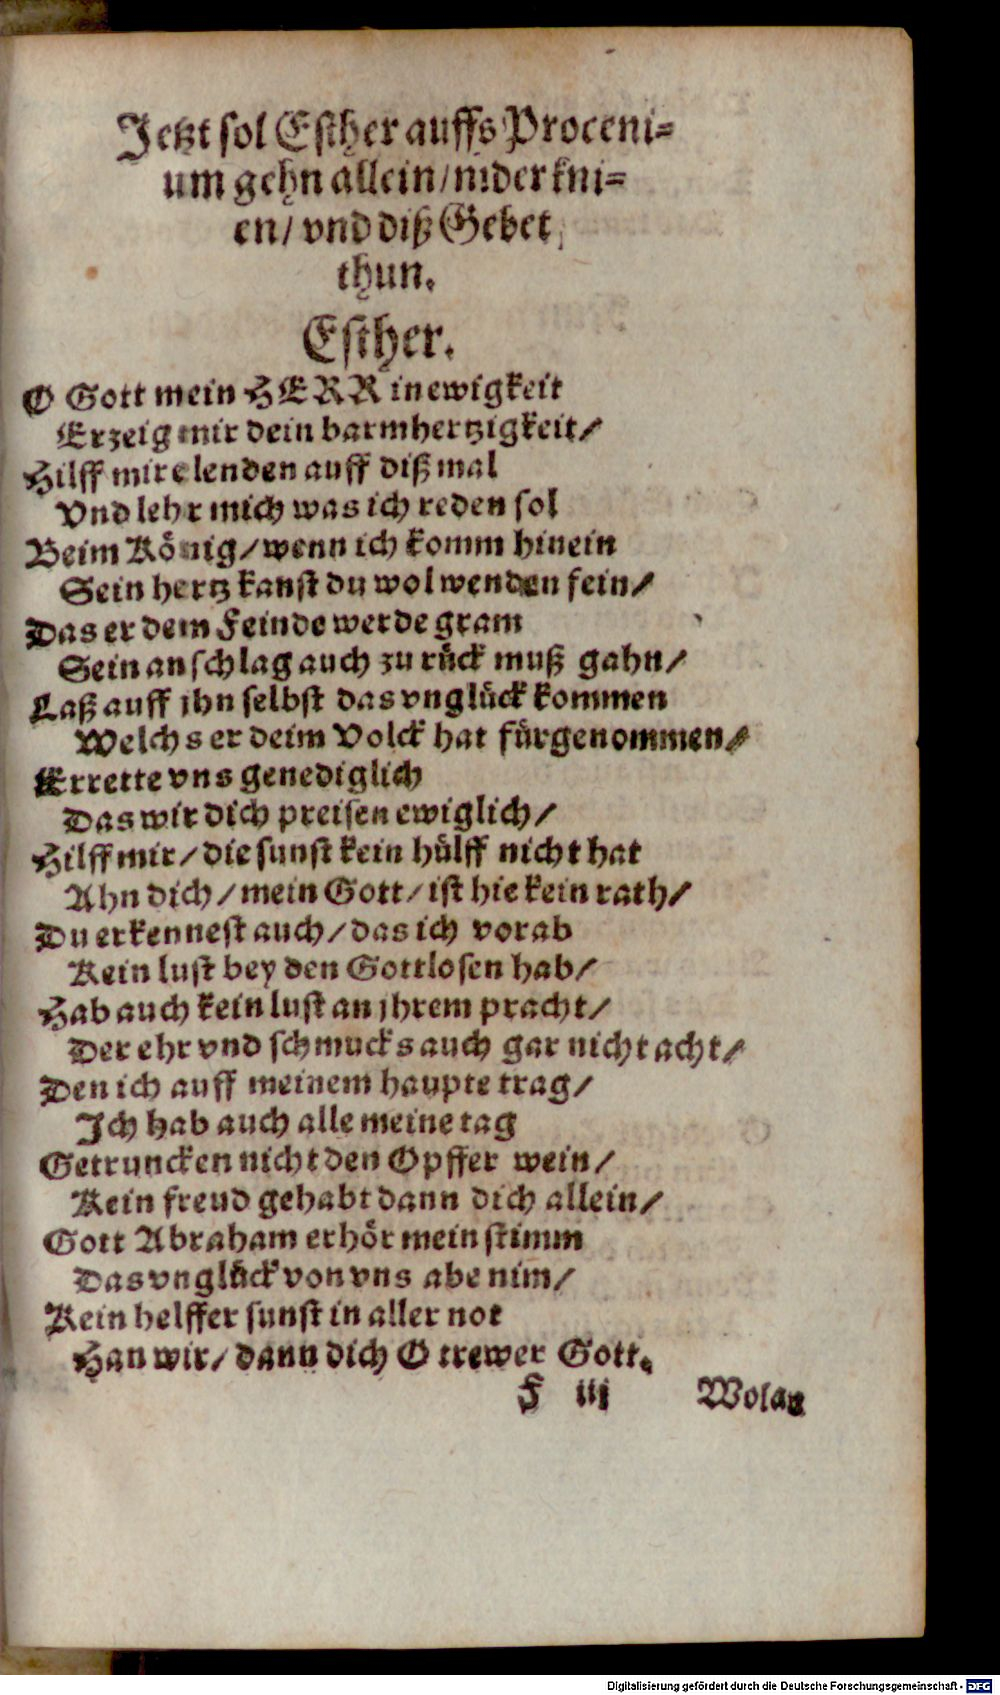 Jetzt sol Esther auffs Proceni-
um gehn allein / nider kni-
en / vnd diß Gebet
thun.
Esther.
O Gott mein HERR in ewigkeit
Erzeig mir dein barmhertzigkeit /
Hilff mir elenden auff diß mal
Vnd lehr mich was ich reden sol
Beim König / wenn ich komm hinein
Sein hertz kanst du wol wenden fein /
Das er dem Feinde werde gram
Sein anschlag auch zu rück muß gahn /
Laß auff jhn selbst das vnglück kommen
Welchs er deim Volck hat fürgenommen /
Errette vns genediglich
Das wir dich preisen ewiglich /
Hilff mir / die sunst kein hülff nicht hat
Ahn dich / mein Gott / ist hie kein rath /
Du erkennest auch / das ich vorab
Kein lust bey den Gottlosen hab /
Hab auch kein lust an jhrem pracht /
Der ehr vnd schmucks auch gar nicht acht /
Den ich auff meinem haupte trag /
Ich hab auch alle meine tag
Getruncken nicht den Opffer wein /
Kein freud gehabt dann dich allein /
Gott Abraham erhör mein stimm
Das vnglück von vns abe nim /
Kein helffer sunst in aller not
Han wir / dann dich O trewer Gott.
F iij Wolan
Digitalisierung gefördert durch die Deutsche Forschungsgemeinschaft - DFG